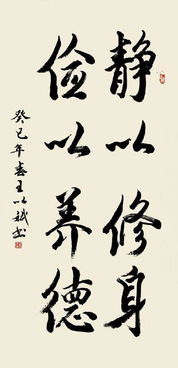 静以修身
俭以养德
癸巳年春王以越书